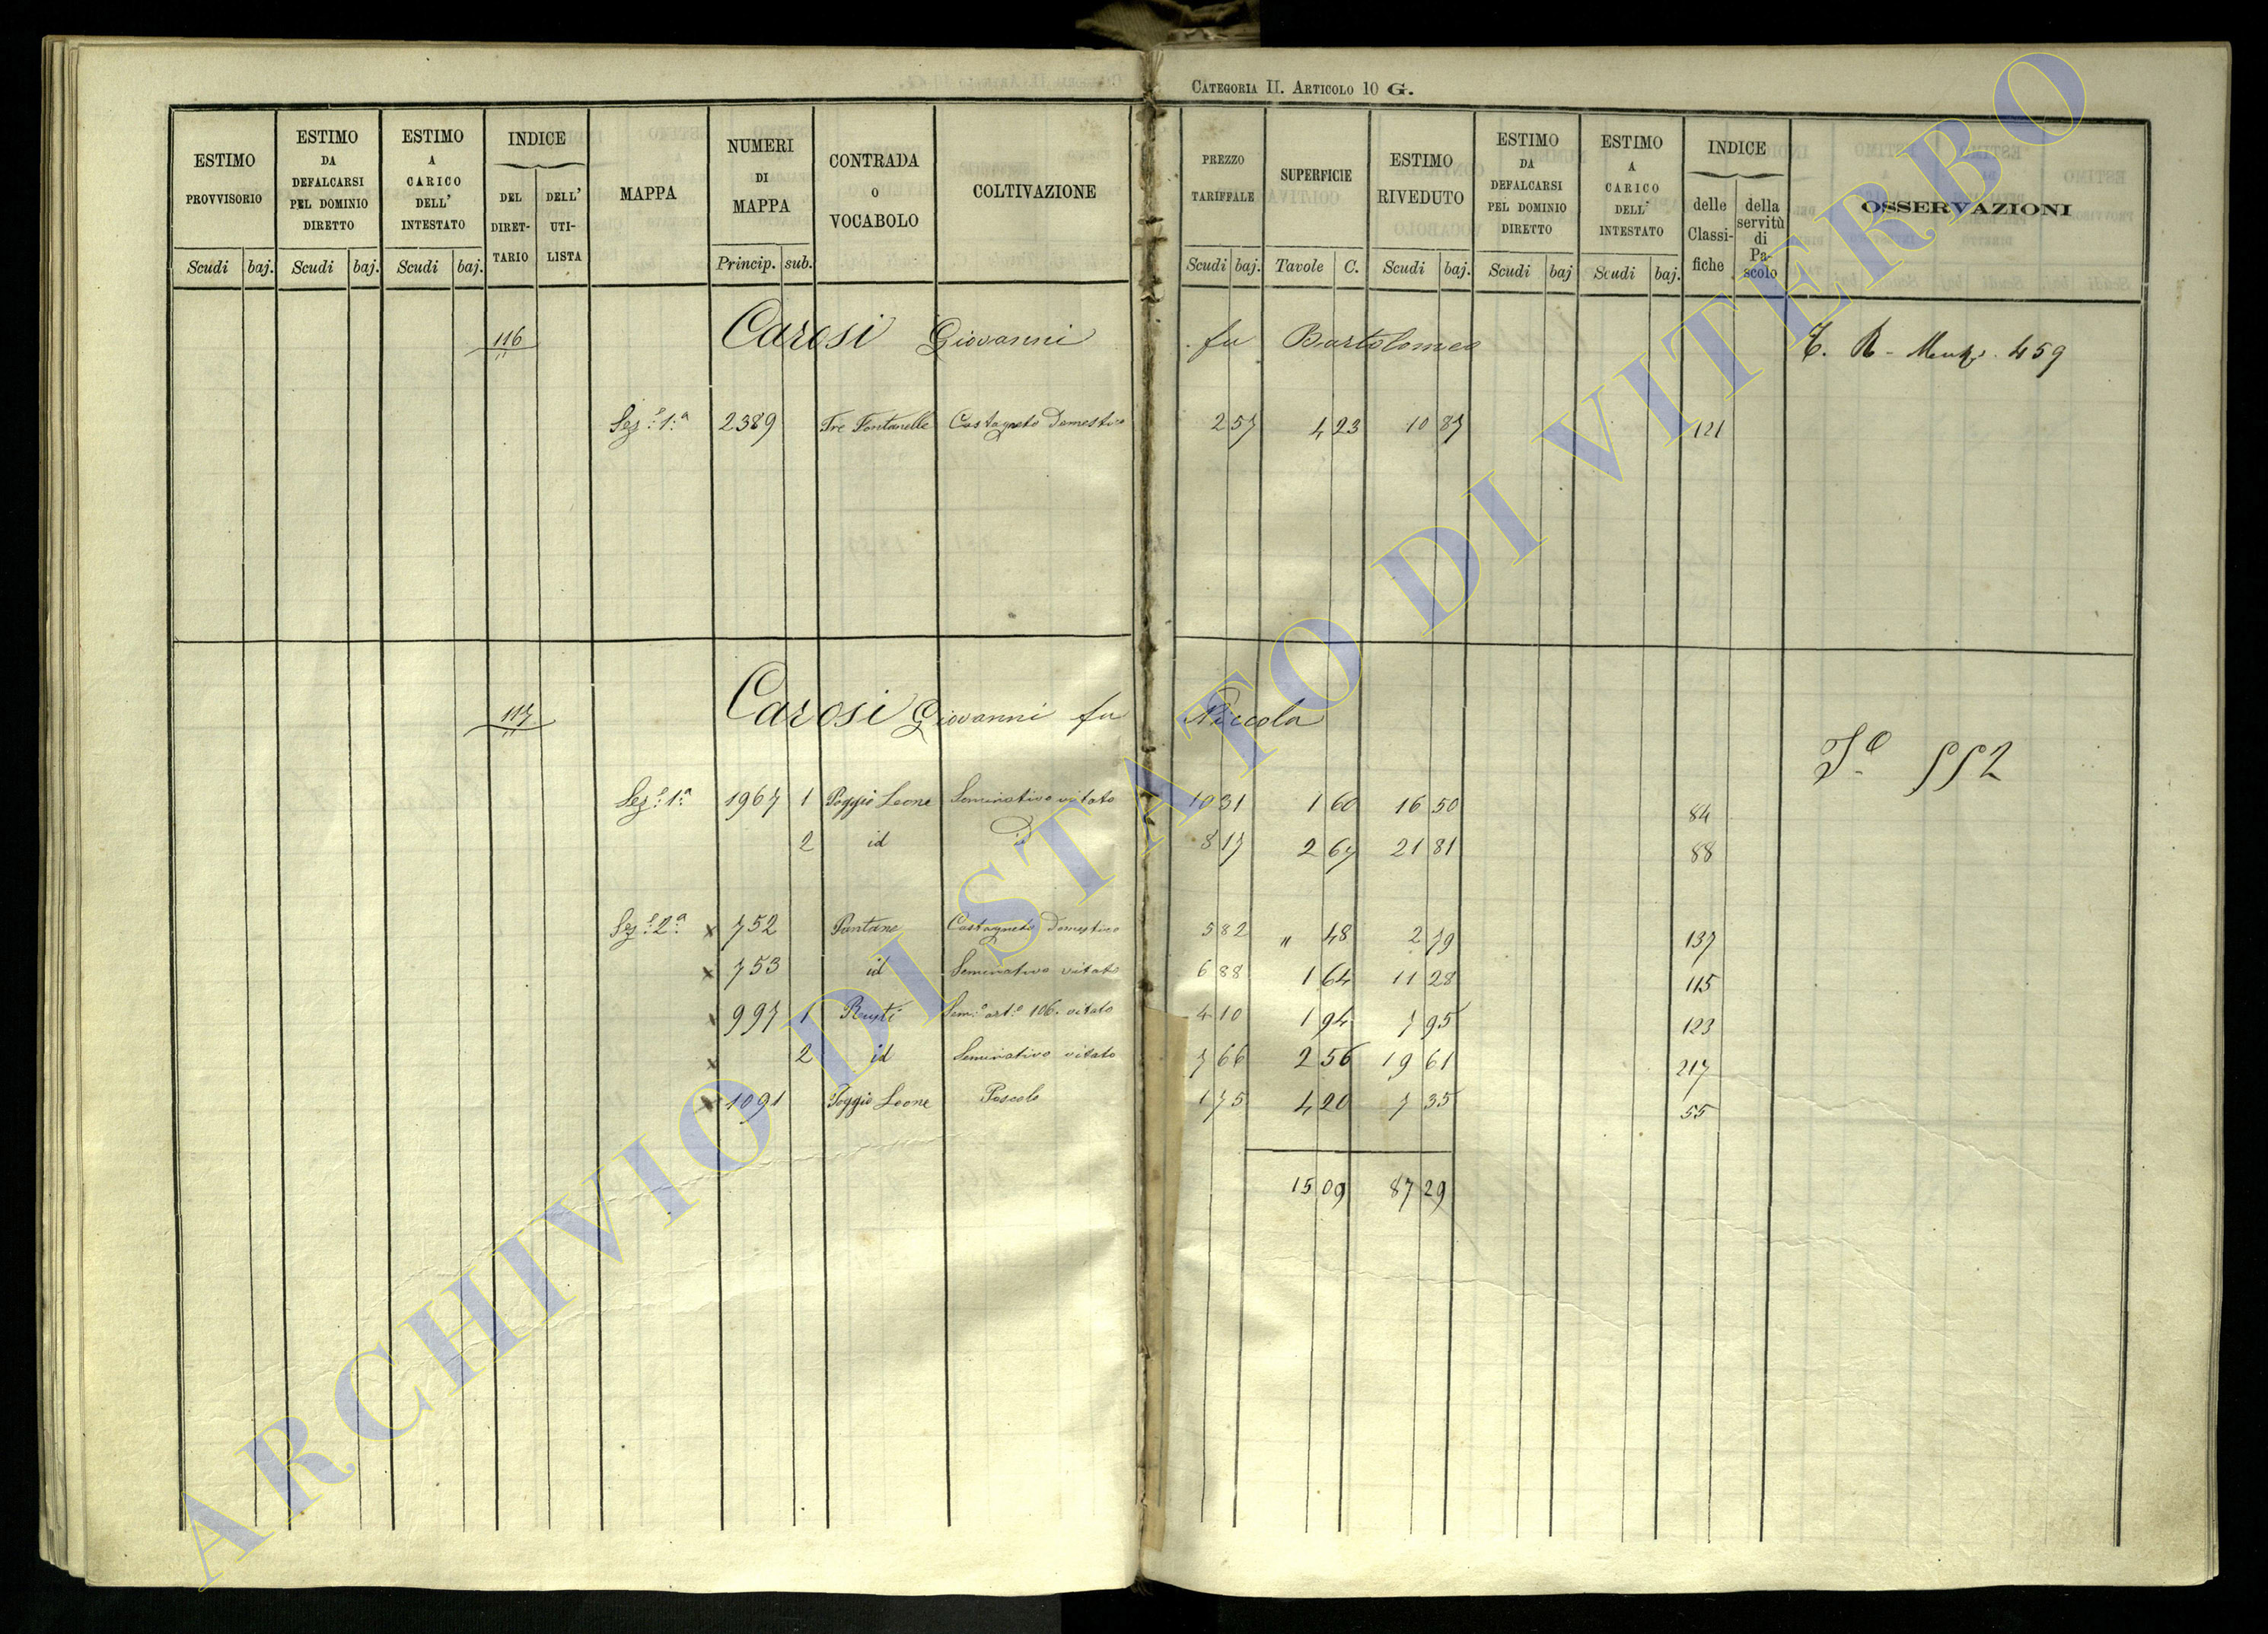 CATEGORIA II. ARTICOLO 10 G.
ESTIMO PROVVISORIO | ESTIMO DA DEFALCARSI PEL DOMINIO DIRETTO | ESTIMO A CARICO DELL' INTESTATO | INDICE DEL DIRETTARIO | DELL' UTILISTA | MAPPA | NUMERI DI MAPPA | CONTRADA O VOCABOLO | COLTIVAZIONE | PREZZO TARIFFALE | SUPERFICIE | ESTIMO RIVEDUTO | ESTIMO DA DEFALCARSI PEL DOMINIO DIRETTO | ESTIMO A CARICO DELL' INTESTATO | INDICE delle Classifiche | della servitù di Pascolo | OSSERVAZIONI
Scudi baj. Scudi baj. Scudi baj. Princip. sub. Scudi baj. Tavole C. Scudi baj. Scudi baj Scudi baj.
116 Carosi Giovanni fu Bartolomeo
459
Sez.e 1.a 2389 Tre Fontanelle Castagneto Domestico 2 57 4 23 10 87 121
117 Carosi Giovanni fu Niccola
552
Sez.e 1.a 1967 1 Poggio Leone Seminativo vitato 10 31 1 60 16 50 84
2 id id 8 17 2 67 21 81 88
Sez.e 2.a x 752 Pantane Castagneto Domestico 5 82 " 48 2 79 137
x 753 id Seminativo vitato 6 88 1 64 11 28 115
x 997 1 Sem.o art.o 106. vitato 4 10 1 94 7 95 123
x 2 id Seminativo vitato 7 66 2 56 19 61 217
x 1091 Poggio Leone Pascolo 1 75 4 20 7 35 55
15 09 87 29
ARCHIVIO DI STATO DI VITERBO